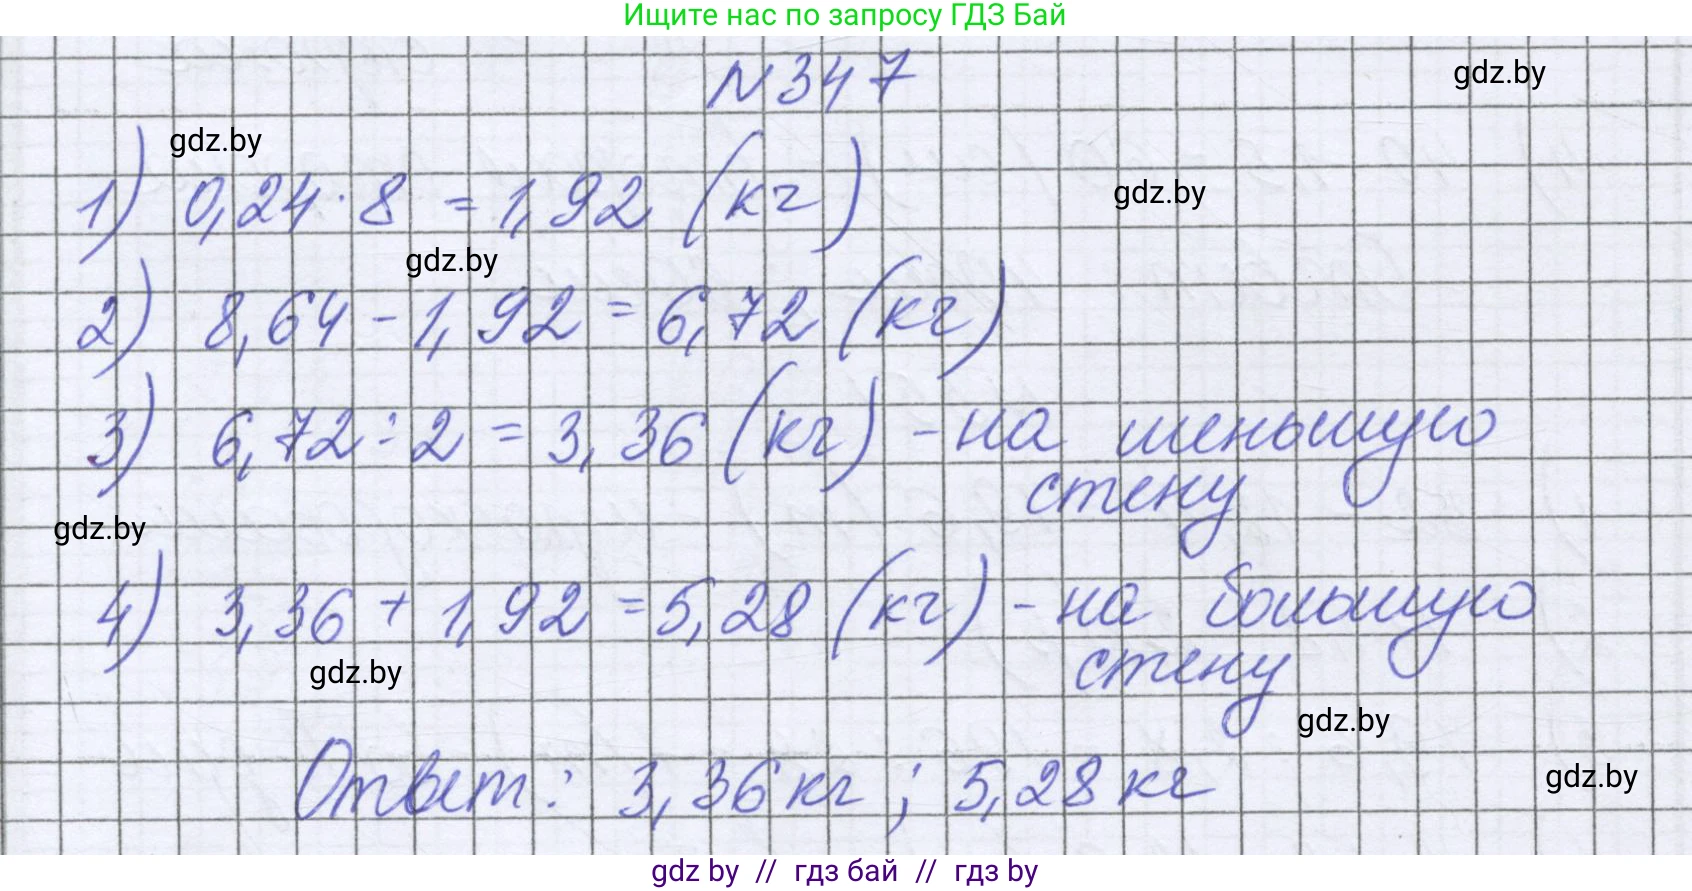 Ищите нас по запросу ГДЗ Бай
N347
gdz.by
gdz.by
1) 0,24 · 8 = 1,92 (кг)
gdz.by
gdz.by
2) 8,64 - 1,92 = 6,72 (кг)
3) 6,72 : 2 = 3,36 (кг) - на меньшую
стену
gdz.by
4) 3,36 + 1,92 = 5,28 (кг) - на большую
стену
gdz.by
gdz.by
Ответ: 3,36 кг ; 5,28 кг
gdz.by
gdz by // гдз бай // гдз by